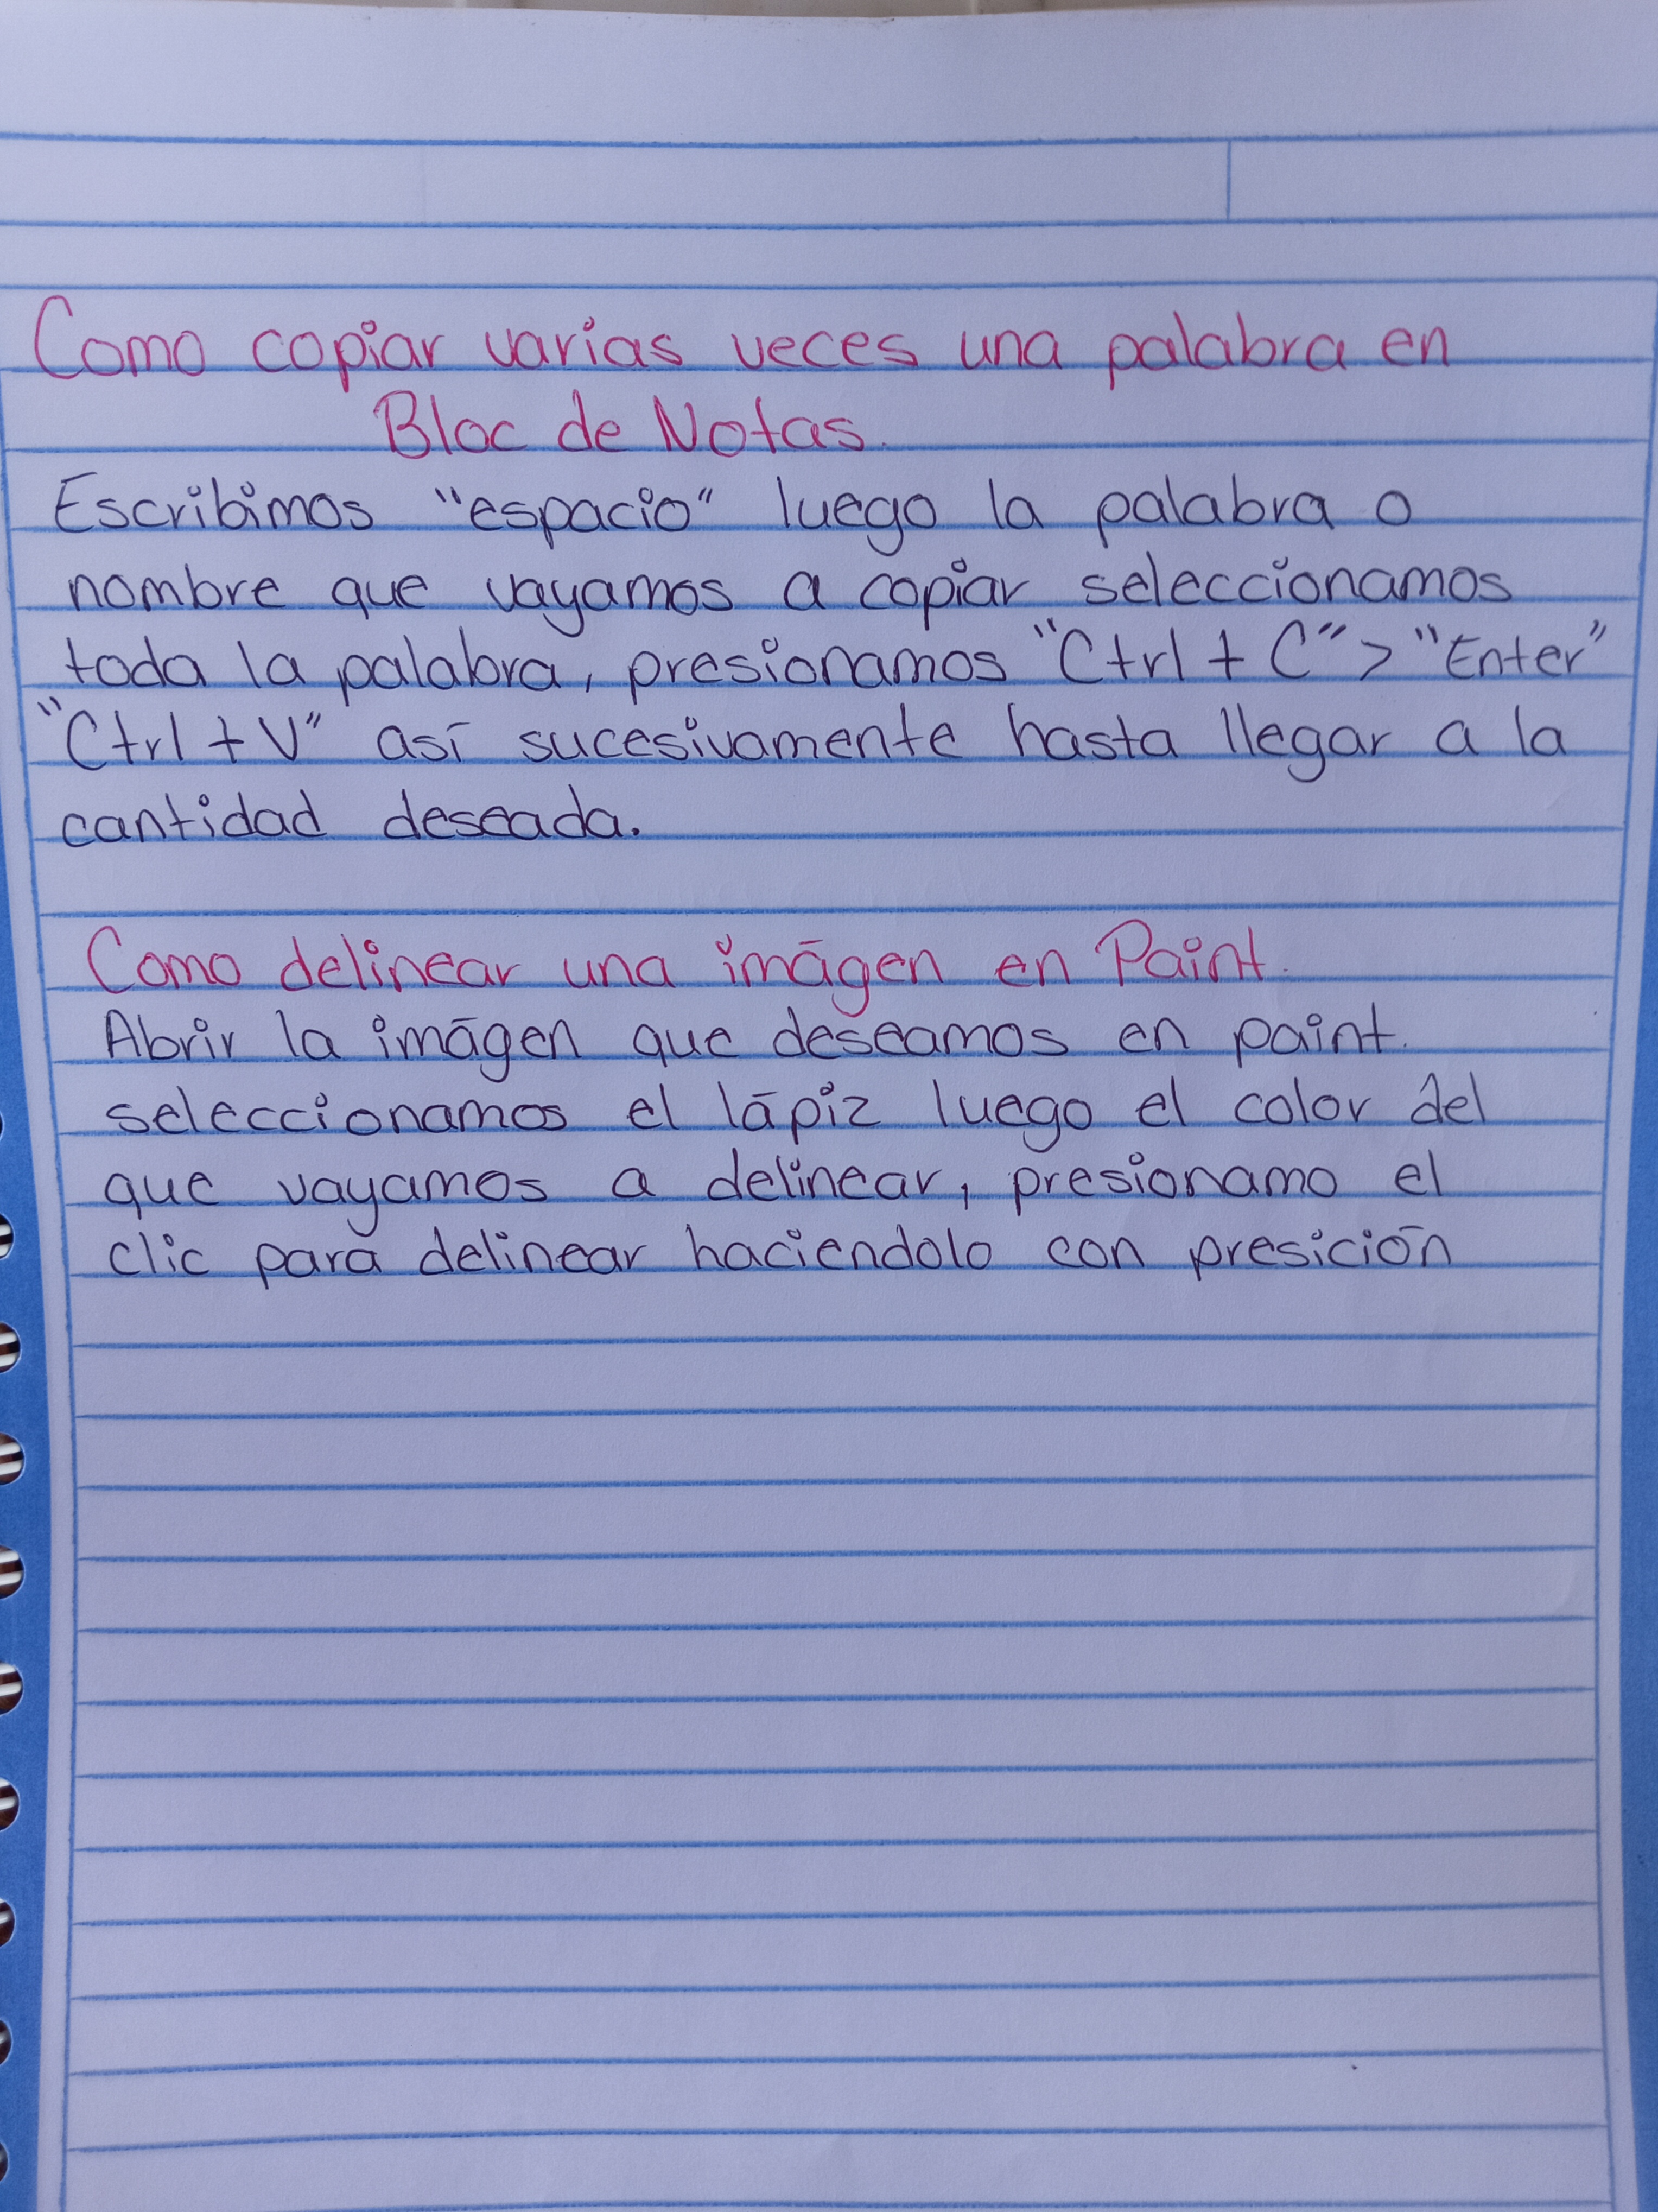 Como copiar varias veces una palabra en
Bloc de Notas.
Escribimos "espacio" luego la palabra o
nombre que vayamos a copiar seleccionamos
toda la palabra, presionamos "Ctrl + C" > "Enter"
"Ctrl + V" así sucesivamente hasta llegar a la
cantidad deseada.
Como delinear una imágen en Paint.
Abrir la imágen que deseamos en paint.
seleccionamos el lápiz luego el color del
que vayamos a delinear, presionamo el
clic para delinear haciendolo con presición